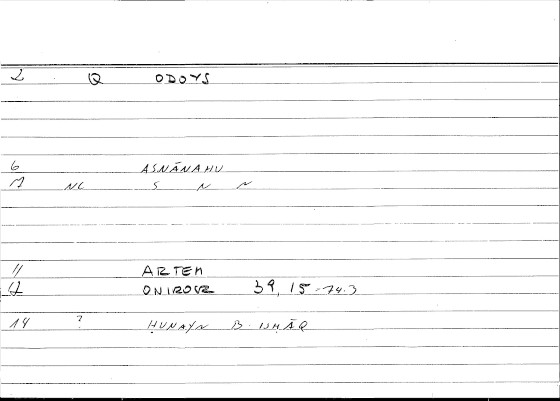 2 Q ODOYS
6 ASNĀNAHU
M NC S N N
11 ARTEM
12 ONIROCR 39, 15-74.3
14 ? ḤUNAYN B. ISḤĀQ